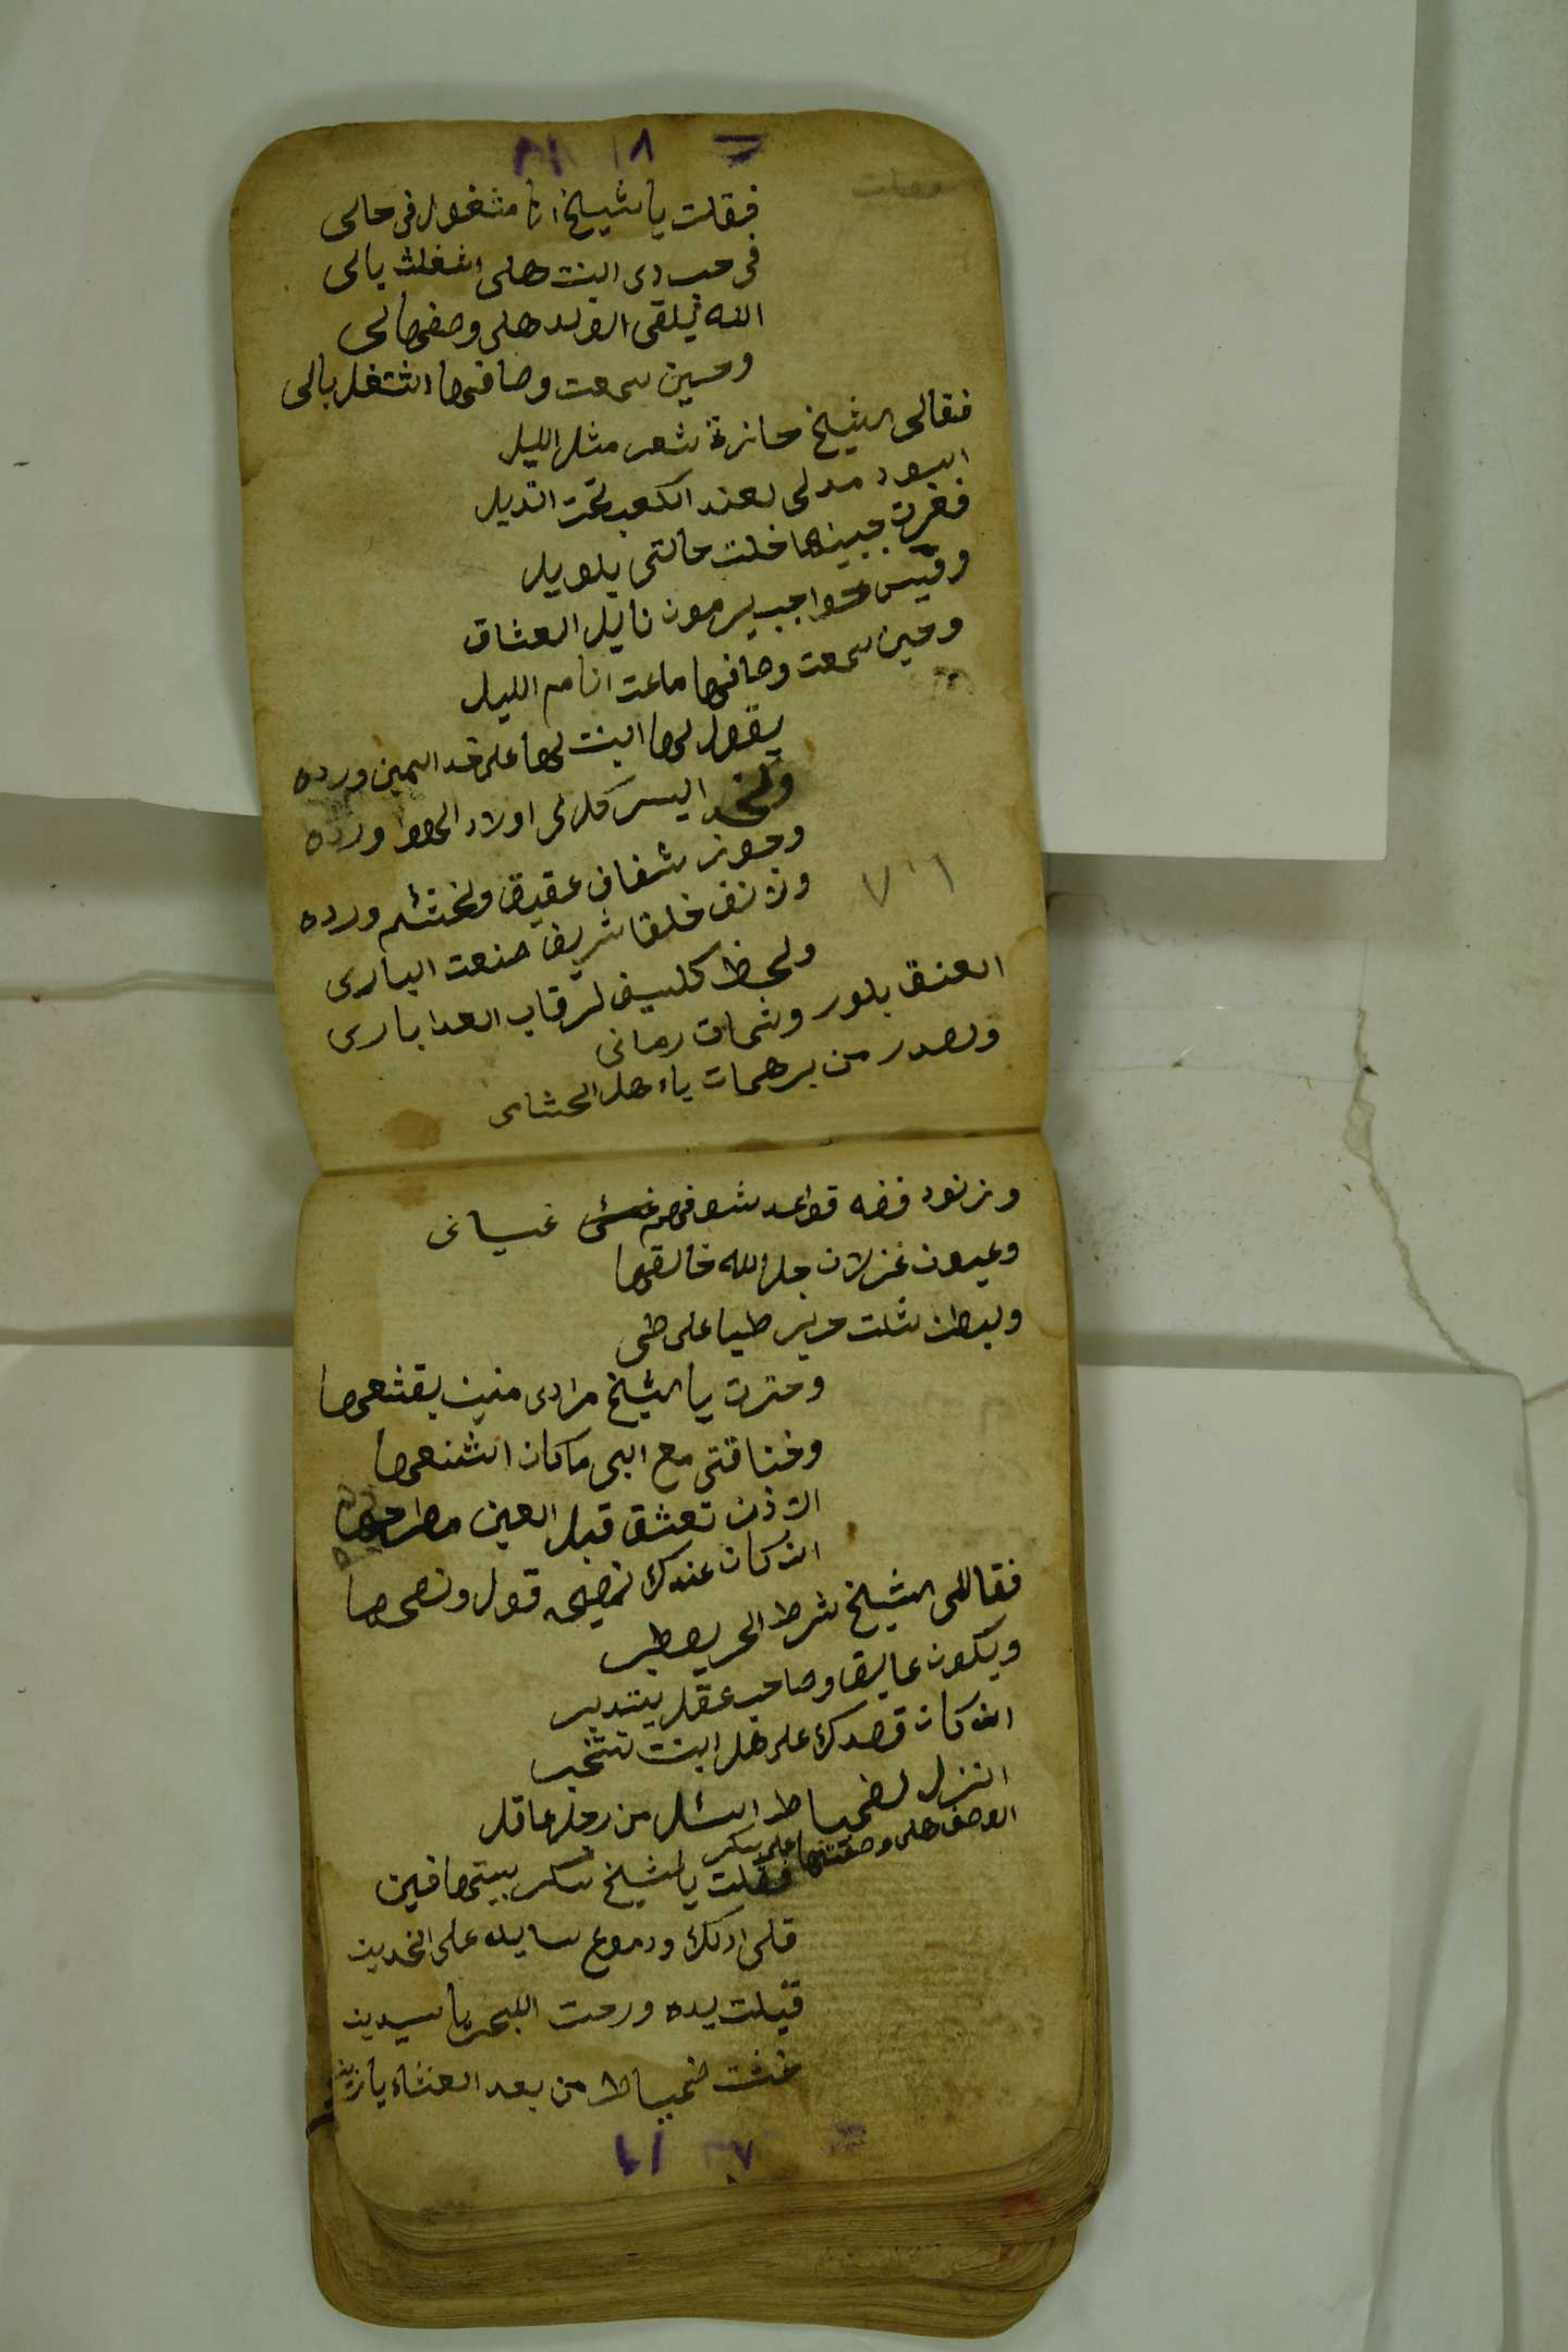 فقلت يا شيخ انا مشغول في حالى
فى حب دى البنت هلى اشغلت بالى
الله يلقى الولد هلى وصفهالى
وحين سمعت وصافها اشتغل بالى
فقالى الشيخ حايزة شعر مثل الليل
اسود مدلى لعند الكعب تحت الديل
فغرت جبينها خلت حالتى بلويل
وقيس حواجب يرمون نايل العشاق
وحين سمعت وصافها ماعت انام الليل
يقول لها البنت لها على خد اليمين ورده
ولخد اليسر كل لى اولاد الهوا ورده
وجوز شفاف عقيق ولختشم ورده
ونزنف خلقا شريف صنعت البارى
ولحظ كلسيف لرقاب العدا بارى
العنق بلور وشمات رمانى
ولصدر من برهمات ياهل الحشاى
وزنود فضه قواعد شوفهم غسانى
وعيون غزلان جل الله خالقها
ولبطن شلت حرير طيا على طى
وحترت يا الشيخ مرادى منين بقشعها
وخناقتى مع ابى ماكان اشنعها
الاذن تعشق قبل العين مطرحها
ان كان عندك نصيحه قول ونصحها
فقاللى الشيخ شرط الحر يصطبر
ويكون عايق وصاحب عقل يتدبر
ان كان قصدك على هل البنت تتخبر
انزل لضمياط اسئل من رجل عاقل
الوصف هلى وصفتها على سكر
فقلت يا لشيخ سكر بيتها فين
قلى ادلك ودموع سايله على الخدين
قبلت يده ورحت البحر يا سيدين
خشت ضمياط من بعد العشاء يا